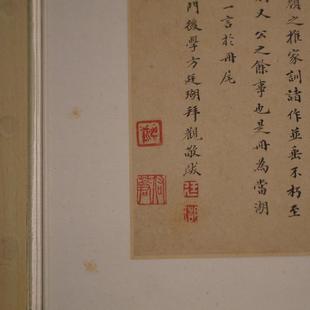 顔之推家訓諸作並垂不朽至
又公之餘事也是冊為當湖
一言於冊尾
門後學方廷瑚拜觀敬跋